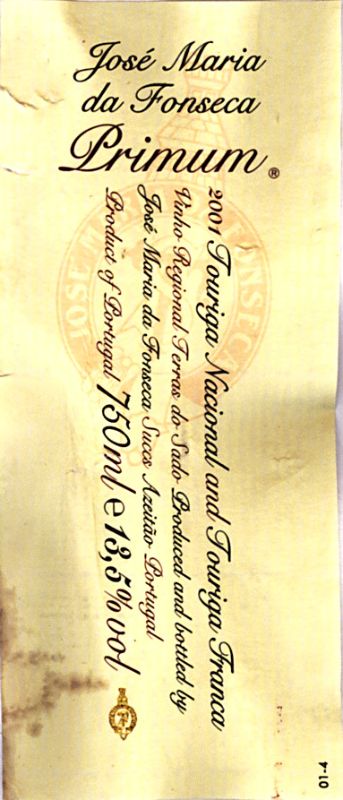 José Maria
da Fonseca
Primum®
2001 Touriga Nacional and Touriga Franca
Vinho Regional Terras do Sado Produced and bottled by
José Maria da Fonseca Suces Azeitão Portugal
Product of Portugal 750ml e 13,5% vol
JOSÉ MARIA DA FONSECA
01-4